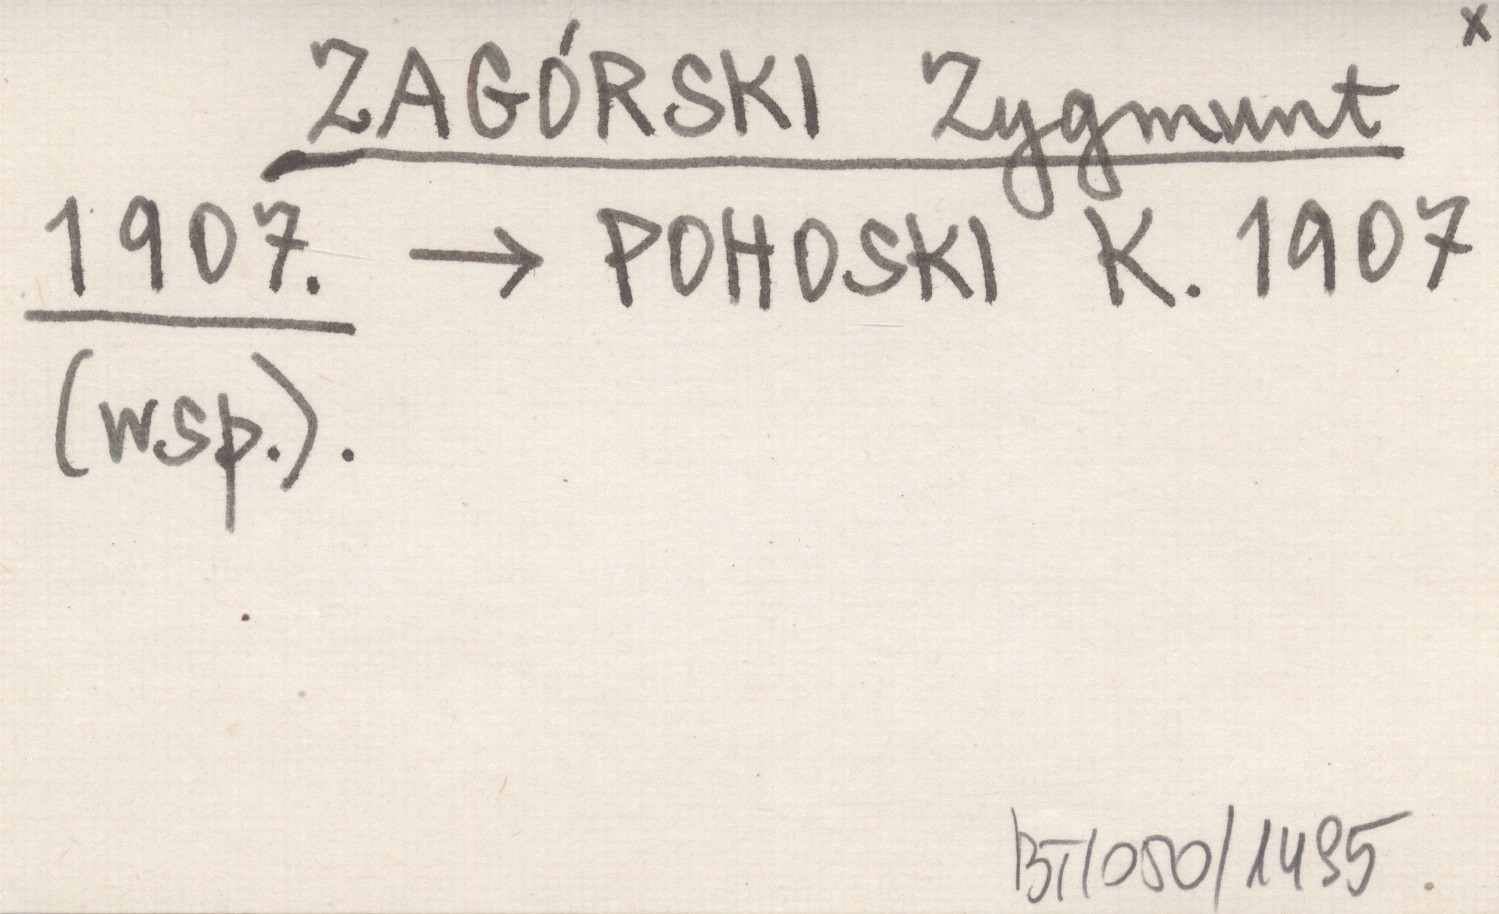 x
ZAGÓRSKI Zygmunt
1907. → POHOSKI K. 1907
(wsp.).
BT/080/1495